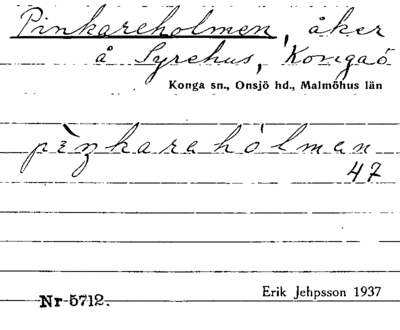 Pinkareholmen, åker
å Syrehus, Kongaö
Konga sn., Onsjö hd., Malmöhus län
pèŋkarehólmen
47
Nr 5712.
Erik Jehpsson 1937